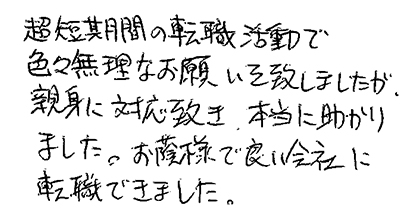 超短期間の転職活動で
色々無理なお願いを致しましたが、
親身に対応致き、本当に助かり
ました。お蔭様で良い会社に
転職できました。